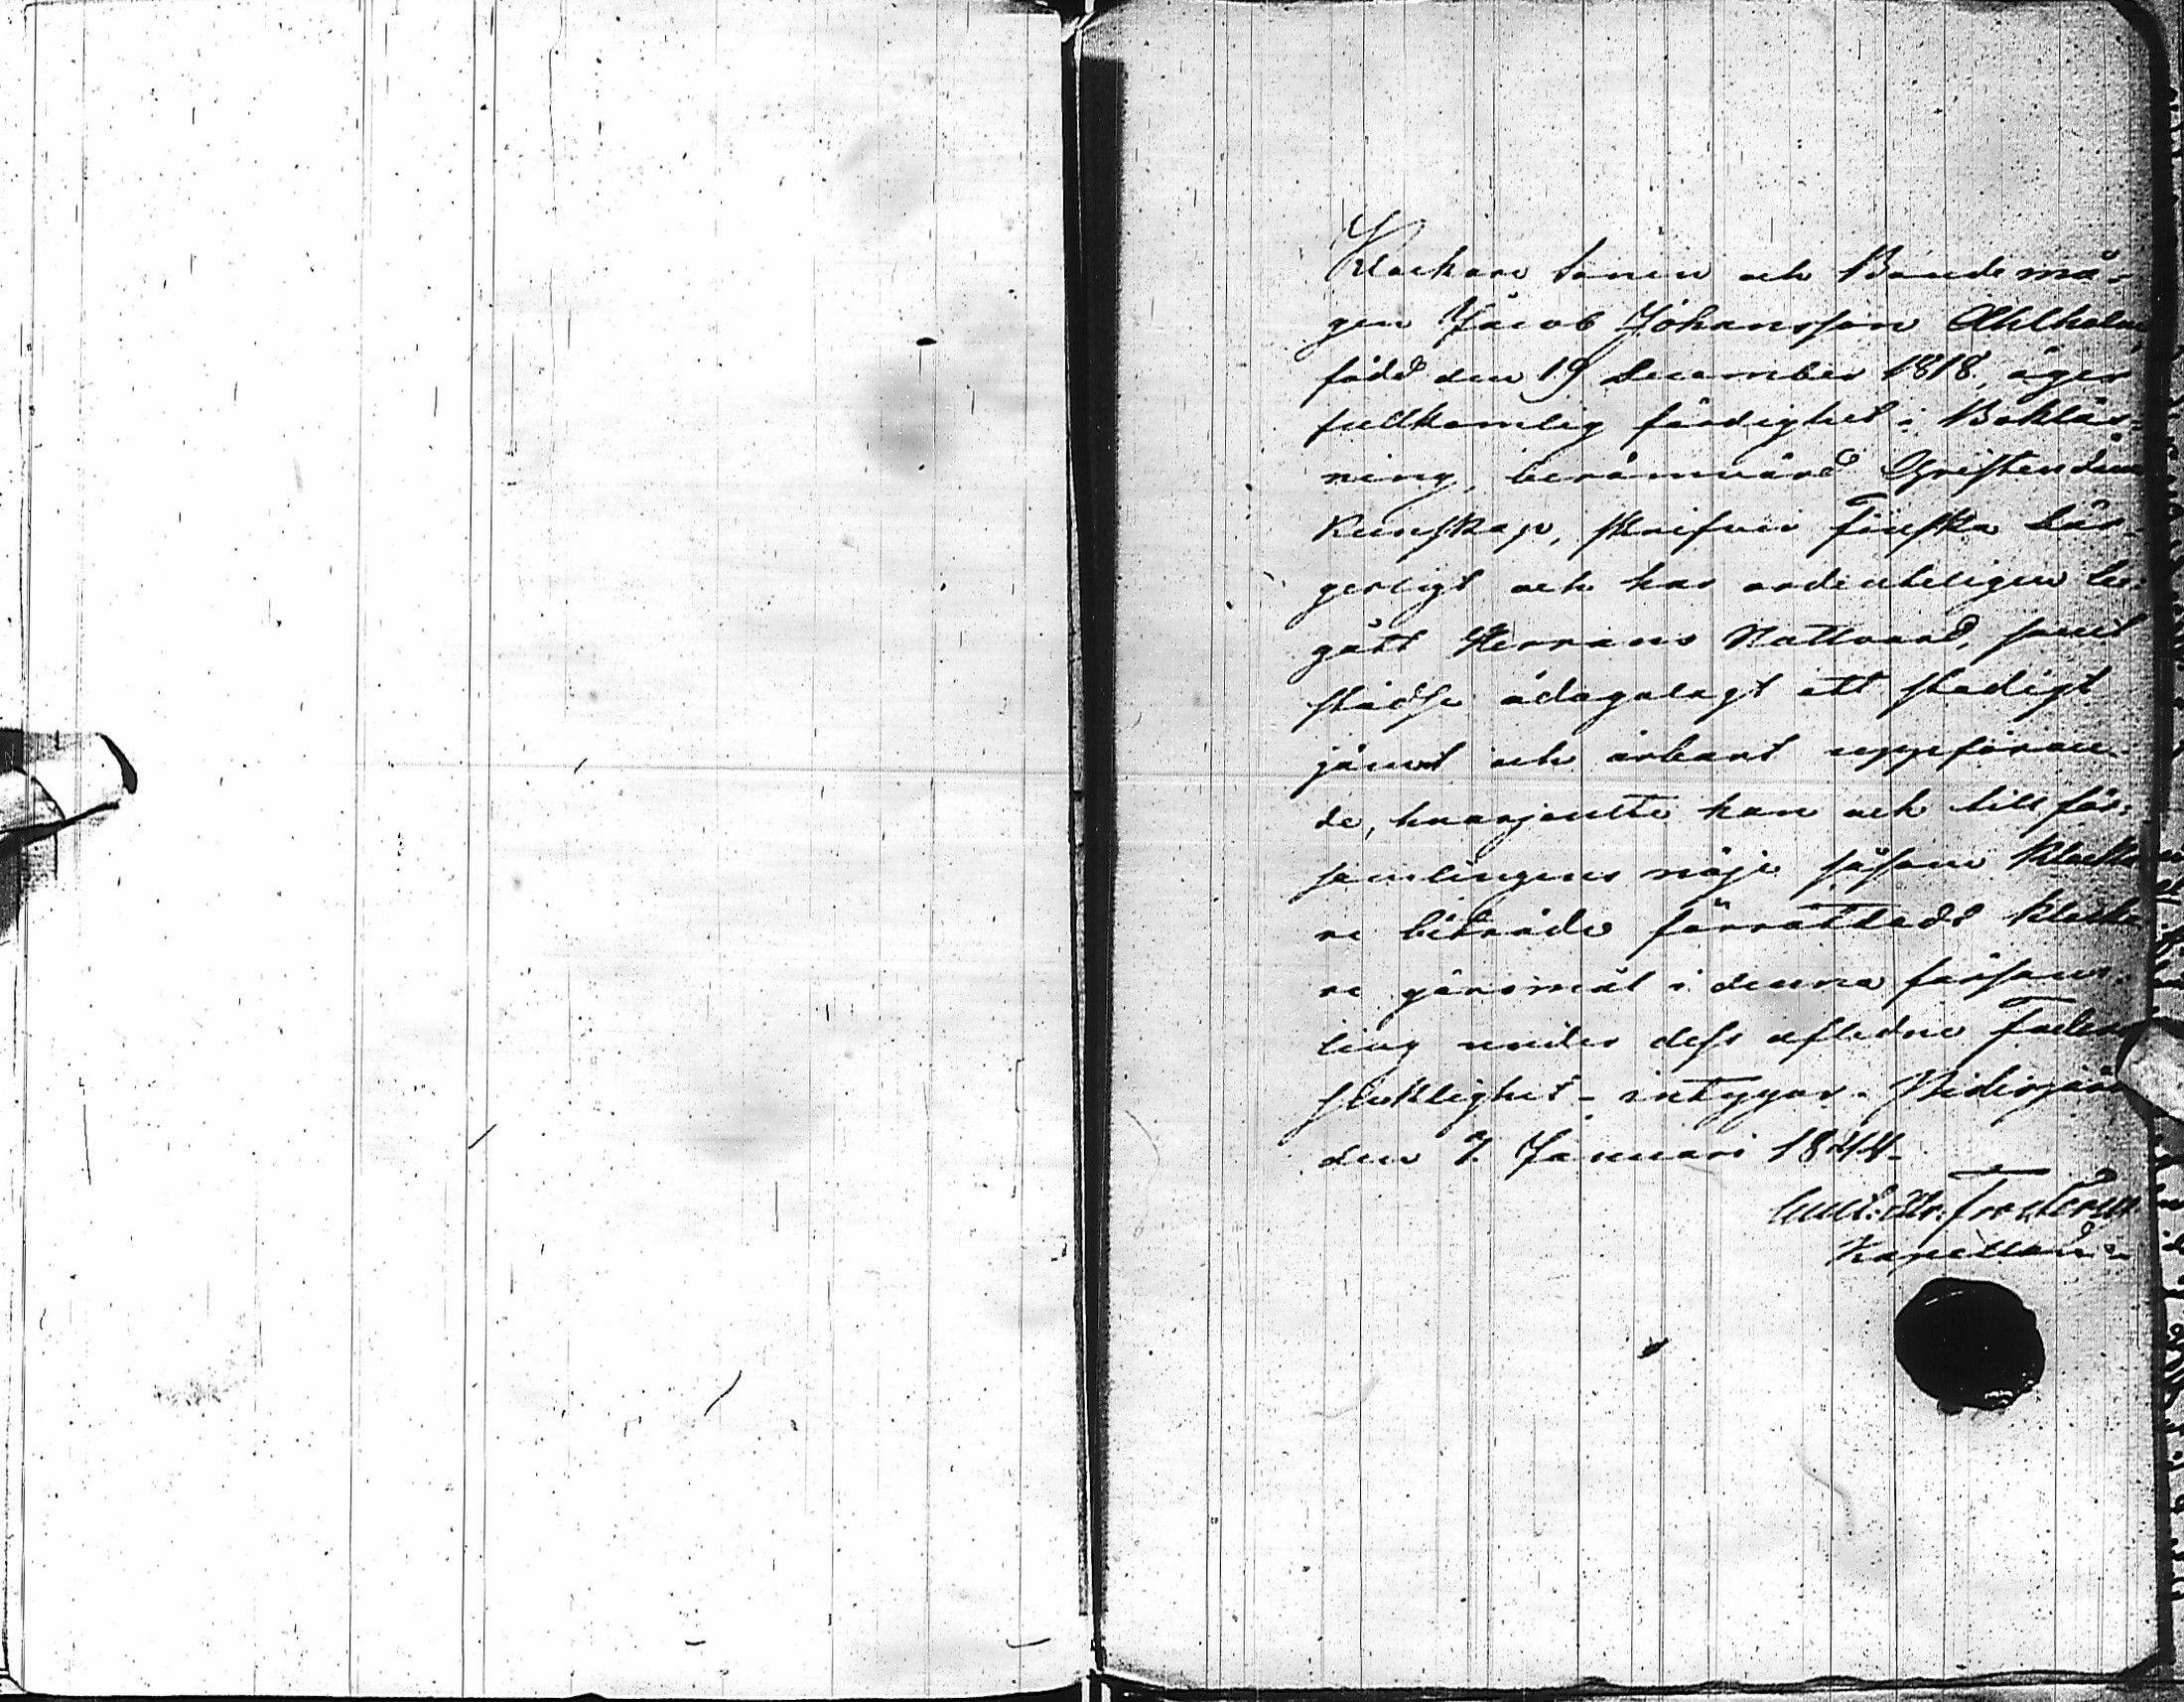 Klockare sonen och Bondemå-
gen Jacob Johansson Ahlholm,
född den 19 December 1818, äger
fullkomlig färdighet i Boklär-
ning, berömvärd Christendom
Kunskap, skrifver Finska där-
gerligt och har ordenteligen be-
gått Herrans Nattvard, samt
städse ådagalagt ett stadigt
jämt och ärbart uppföran-
de, hvarjemte han och till för-
samlingens nöje såsom Klocka
re biträde förrättadt klocka
re göromål i denna försam-
ling under dess afledne Faders
sjuklighet - intygar. Nederjärvi
den 7 Januari 1844.
Kapellan